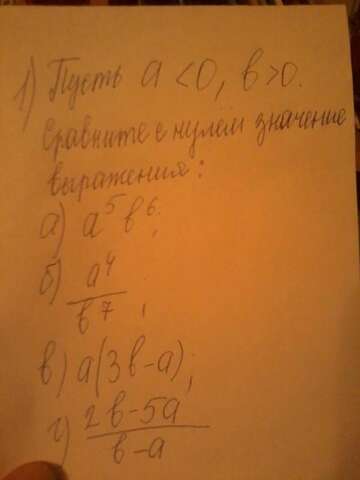 1) Пусть a < 0, b > 0.
Сравните с нулём значение
выражения:
а) a⁵ b⁶;
б) a⁴/b⁷;
в) a(3b-a);
г) (2b-5a)/(b-a)